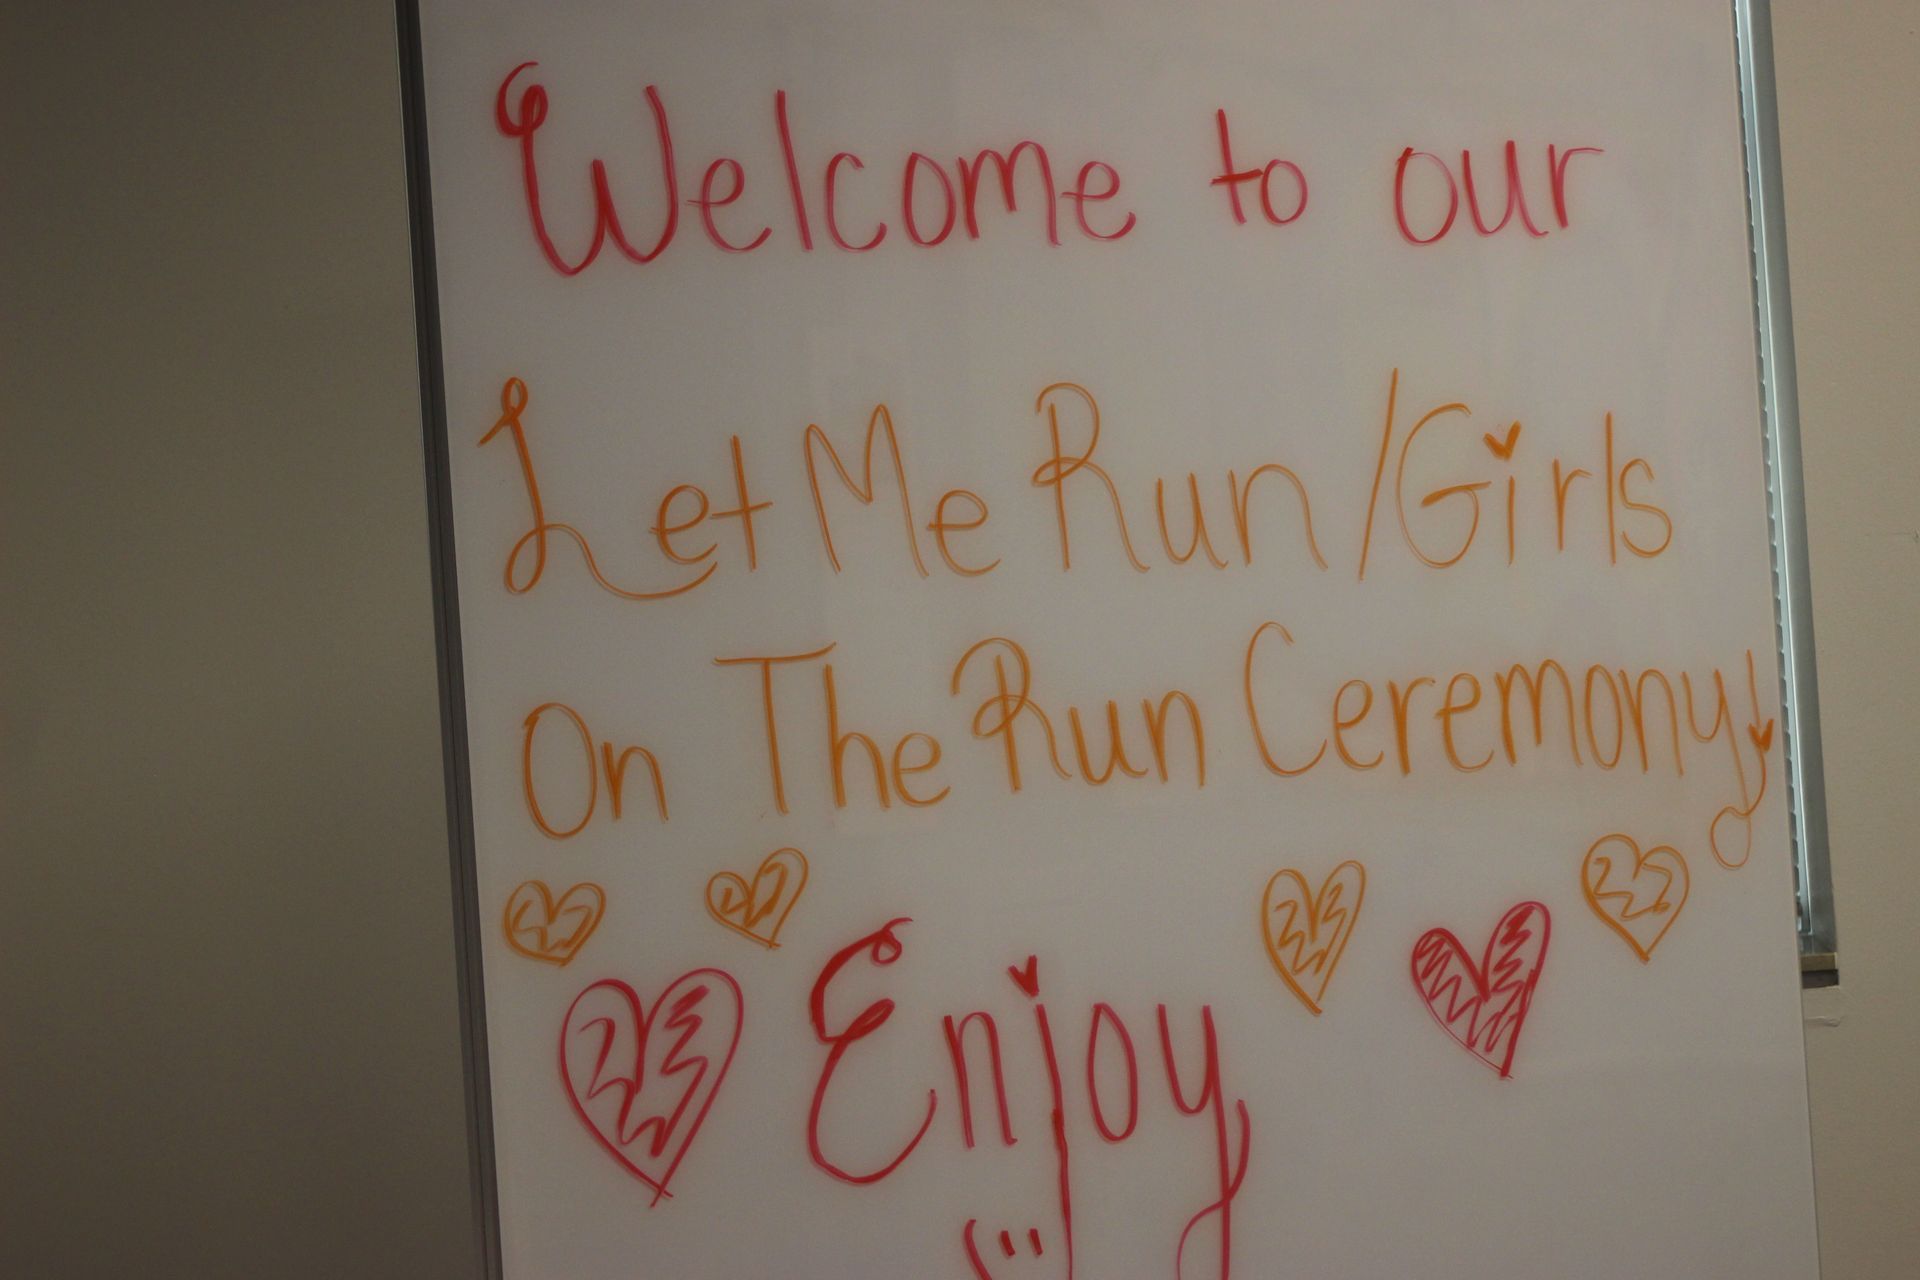 Welcome to our
Let Me Run/Girls
On The Run Ceremony!
Enjoy